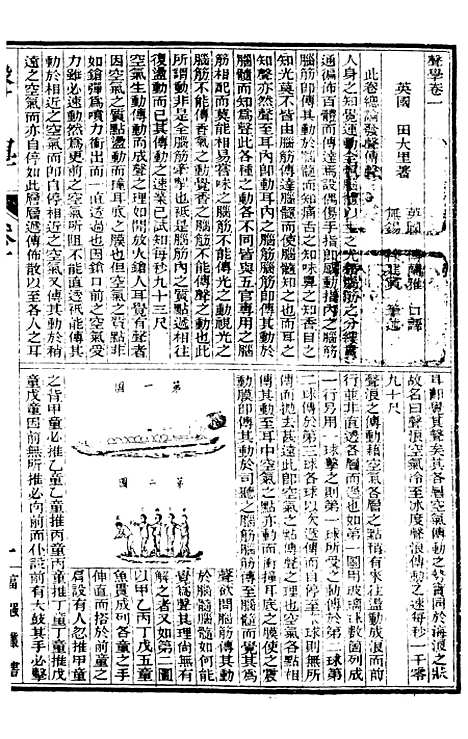 聲學卷一
英國 田大里著
英國 傅蘭雅 口譯
無錫 徐建寅 筆述
此卷總論發聲傳聲
人身之知覺運動全
通徧佈百體而傳達爲設偶傷手指卽動指內之腦筋
腦筋卽傳其動於腦髓而知痛舌之知味鼻之知香目之
知光莫不皆由腦筋傳達腦髓而使腦髓知之也而耳之
知聲亦然聲至耳內卽動耳內之腦筋腦筋卽傳其動於
腦髓而知爲聲此各種之動各不同皆與五官專用之腦
筋相配而莫能相易嘗味之腦筋不能傳光之動視光之
腦筋不能傳香氣之動覺香之腦筋不能傳聲之動也此
所謂動非是全腦筋牽掣也祇是腦筋內之質點遞相往
復盪動而已其傳動之速業已試知每秒九十三尺
空氣生動傳動而成聲之理如開放火鎗人耳覺有聲者
因空氣之質點盪動而撞耳底之膜也但空氣之質點非
如鎗彈爲噴力衝出而一直透過也因鎗口前之空氣受
力雖必速動然爲更前之空氣所阻不能直透祇能傳其
動於相近之空氣而卽自停相近之空氣又傳其動於稍
遠之空氣而亦自停如此層層遞傳佈散以至各人之耳
耳卽覺其聲矣其各層空氣傳動之勢實同於海浪之狀
故名曰聲浪空氣冷至冰度聲浪傳動之速每秒一千零
九十尺
聲浪之傳動藉空氣各層之質點有來往盪動成浪而前
行並非直透各層而過也如第一圖用玻璃球數箇列成
一行另用一球擊之則第一球所受之動傳於第二球第
二球傳於第三球各球以次遞傳而自停至末球則無所
傳而拋去甚遠此卽空氣之點傳聲之理也空氣各點
傳其動至耳中空氣之點亦動而撞耳底之膜使之震
動膜卽傳其動於司聽之腦筋腦筋傳至腦髓而覺其
聲欲問腦筋傳其動
於腦髓腦髓如何能
覺爲聲其理尚無有
解之者又如第二圖
以甲乙丙丁戊五童
魚貫成列各童之手
伸直而搭於前童之
肩設有人忽推甲童
之背甲童必推乙童乙童推丙童丙童推丁童丁童推戊
童戊童因前無所推必向前而仆設前有大鼓其手必擊
第一圖
第二圖
一
富强叢書